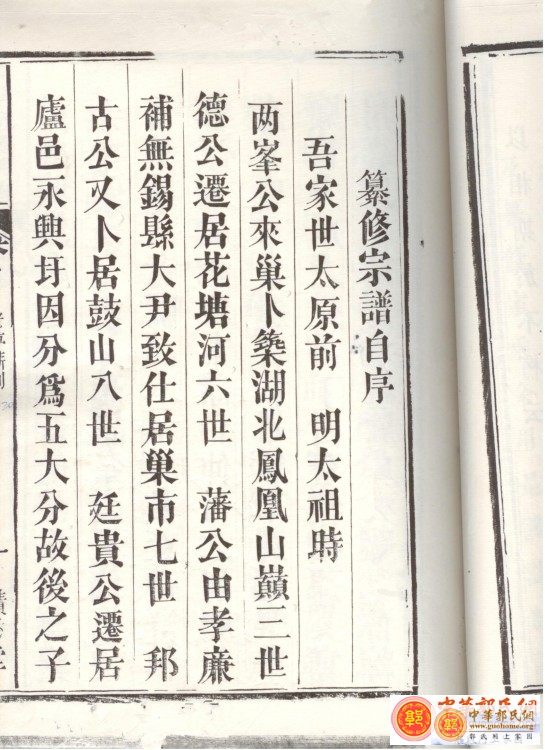 纂修宗譜自序
吾家世太原前 明太祖時
两峯公來巢卜築湖北鳳凰山巔三世
德公遷居花塘河六世 藩公由孝廉
補無錫縣大尹致仕居巢市七世 邦
古公又卜居鼓山八世 廷貴公遷居
廬邑永興圩因分爲五大分故後之子
中華郭氏網
www.guohome.org
郭氏網上家園